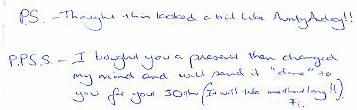 PS. - Thought this looked a bit like Aunty Audrey!!
P.P.S.S. - I bought you a present then changed
my mind and will send it "done" to
you for your 30th (It will take me that long!!)
Fi.